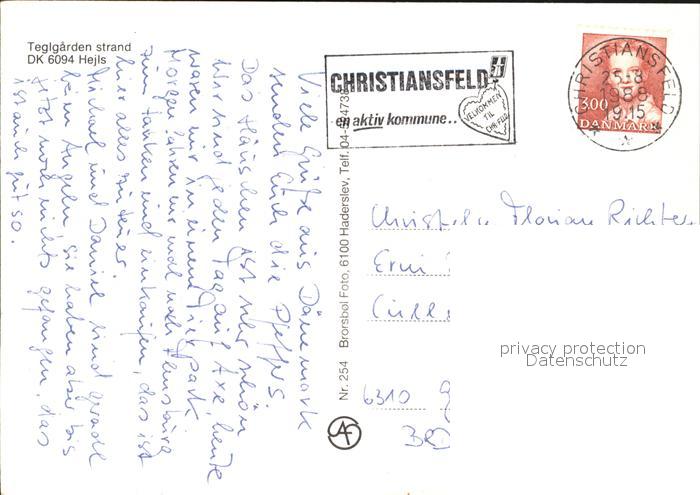 Teglgården strand
DK 6094 Hejls
CHRISTIANSFELD
en aktiv kommune..
VELKOMMEN
TIL
CHR.FELD
CHRISTIANSFELD
25.-8.
1988
19.15
3.00
DANMARK
Nr. 254 Brorsbol Foto, 6100 Haderslev, Telf. 04-524738
Viele Grüße aus Dänemark
senden Euch die Pfeffers.
Das Häuschen ist sehr schön
wir sind jeden Tag auf Axe, heute
waren wir in einem Tierpark.
Morgen fahren wir mal nach Flensburg
zum Tanken und einkaufen, das ist
hier alles zu teuer.
Michael und Daniel sind gerade
beim Angeln, sie haben aber bis
jetzt noch nichts gefangen, das
ist auch gut so.
Florian Richter
6310
BRD
privacy protection
Datenschutz